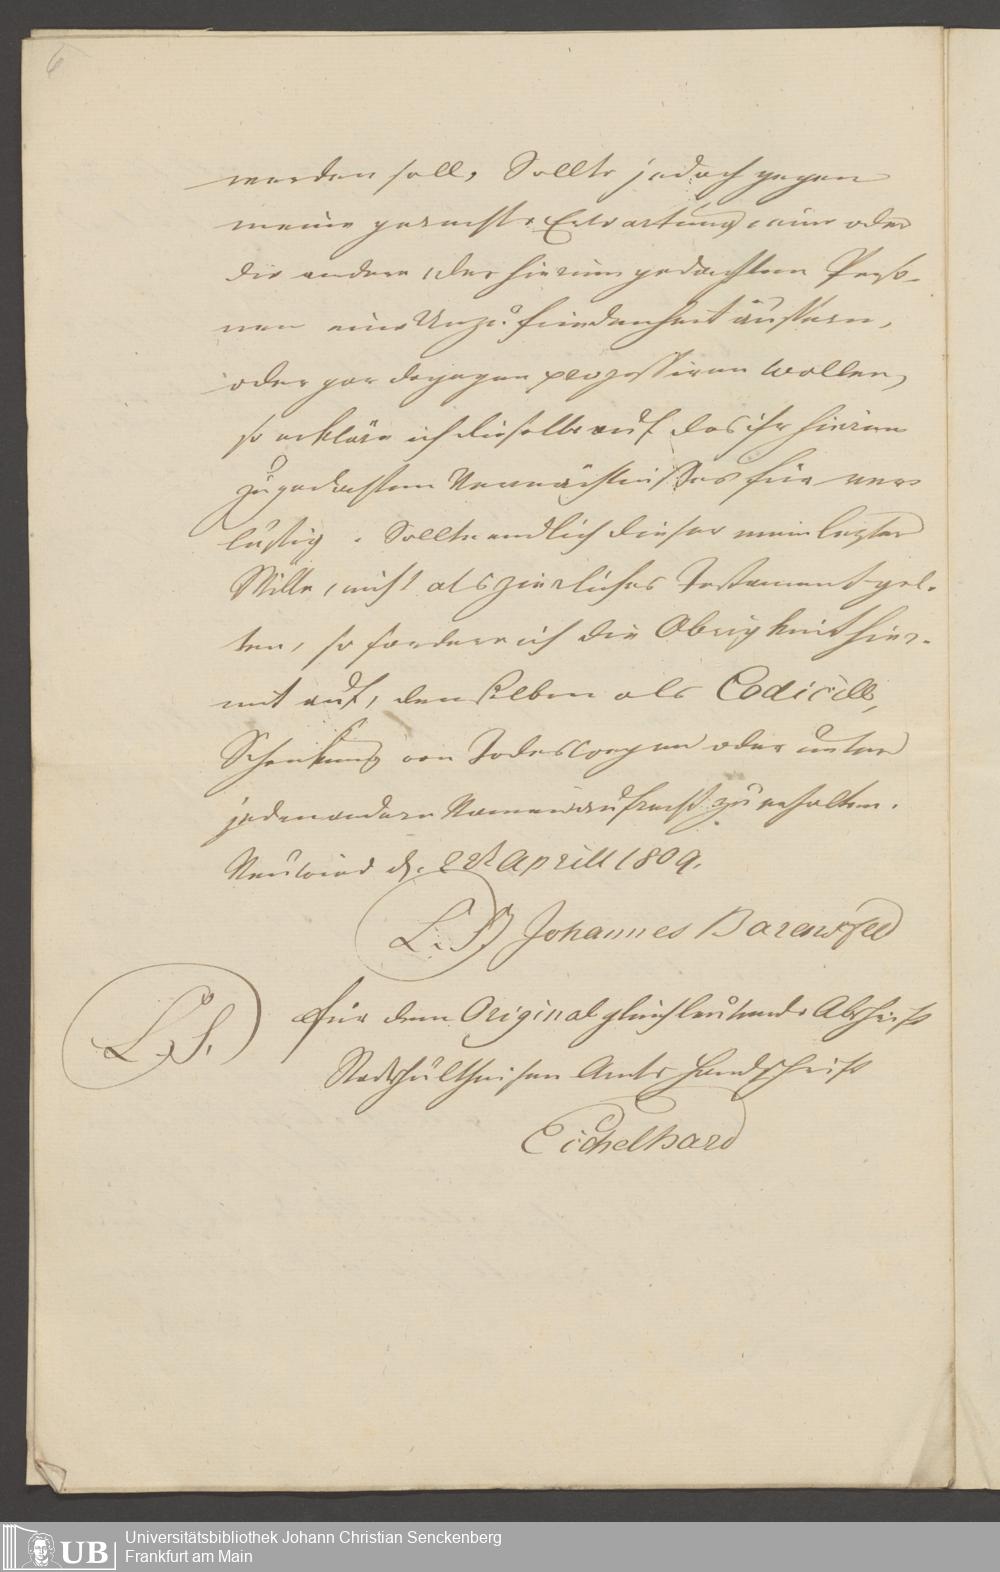 6
werden soll, Sollte jedoch gegen
meine gerechte Erwartung eine oder
die andere, der hierinn gedachten Perso-
nen eine Unzufriedenheit äussern,
oder gar dagegen prozessiren wollen,
so erkläre ich dieselbe auf das ihr hierinn
zugedachten Vermächtnisses für ver-
lustig. Sollte endlich dieser mein letzter
Wille, nicht als zierliches Testament gel-
ten, so fordere ich die Obrigkeit hier-
mit auf, denselben als Codicill,
Schenkung von Todeswegen oder unter
jedem andern Namen aufrecht zu erhalten.
Neuwied d. 22t Aprill 1809.
(L. S.) Johannes Barensfeld
(L. S.) für dem Original gleichlautende Abschrift
Stadtschultheisen Amts Handschrift
Eichelhard
UB Universitätsbibliothek Johann Christian Senckenberg
Frankfurt am Main